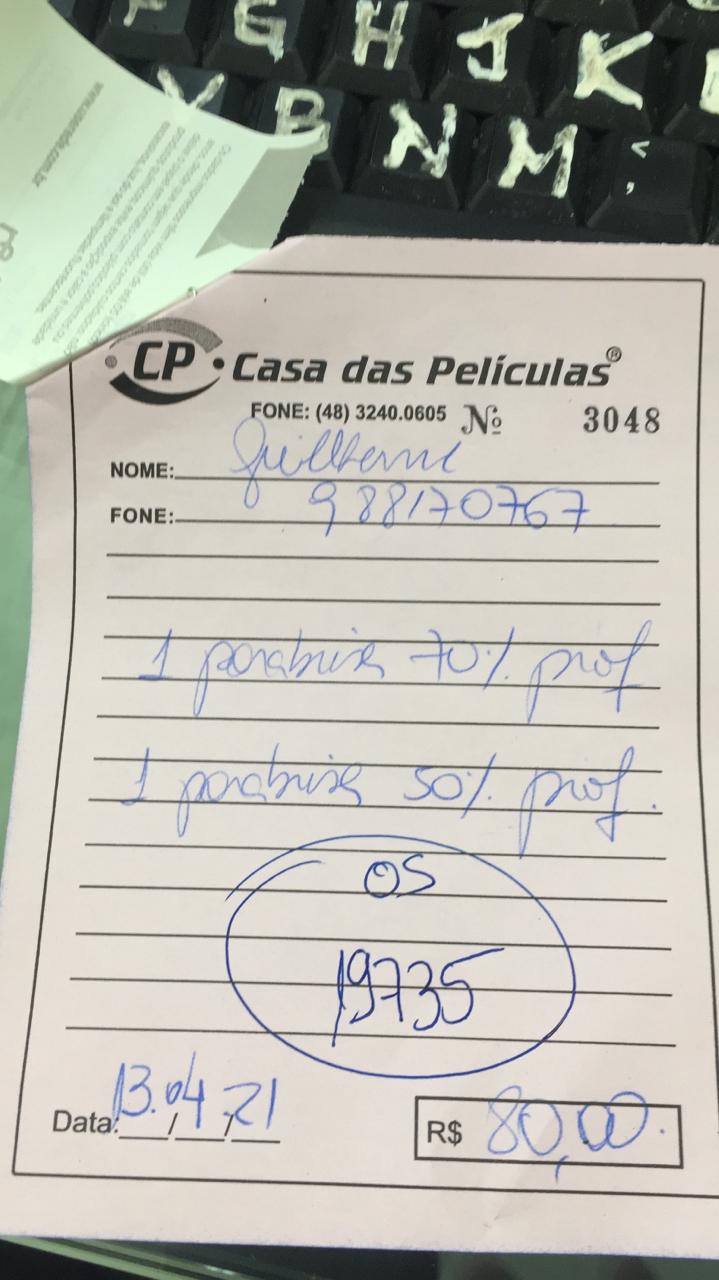 F G H J K
V B N M < ,
www.serede.com.br
CP Casa das Películas®
FONE: (48) 3240.0605 Nº 3048
NOME: Guilherme
FONE: 988170767
1 parabrisa 70% prof
1 parabrisa 50% prof.
OS
19735
Data: 13.04.21
R$ 80,00